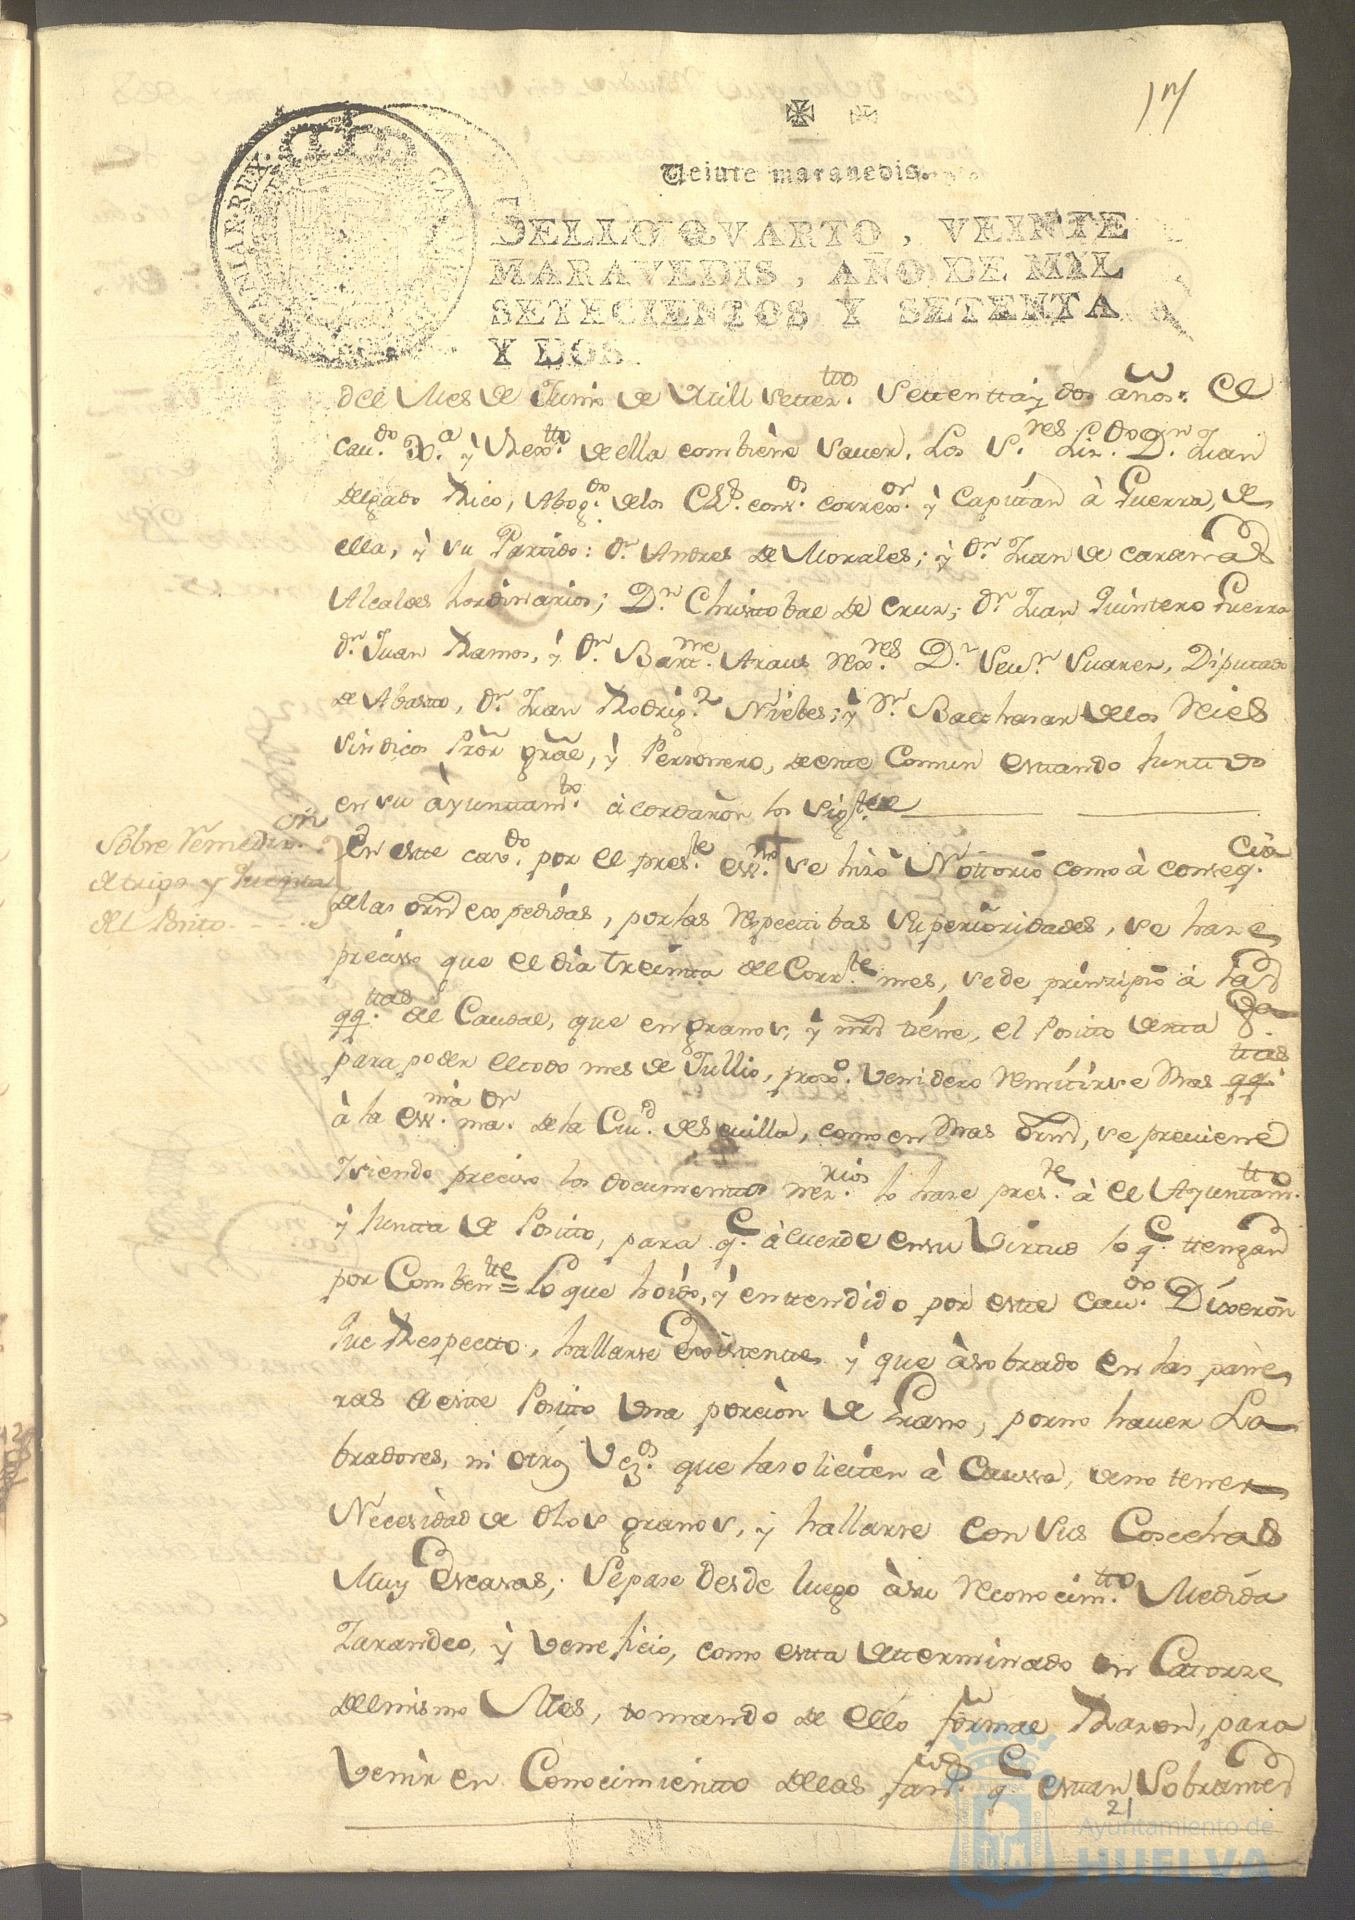 17
Veinte maravedis.
SELLO QVARTO, VEINTE
MARAVEDIS, AÑO DE MIL
SETECIENTOS Y SETENTA
Y DOS.
del Mes de Junio de Mill Setteztos. Settentta y dos años. el
cavdo. Xa. y Rexto. de ella combiene saver. Los Sres. Lizdo. Dn. Juan
delgado Rico, Abogdo. delos Rs. Consos. correxor. y Capitan à Guerra, de
ella, y su Partido: Dn. Andres de Morales; y Dn. Juan de
Alcaldes hordinarios; Dn. Christtobal de Cruz; Dn. Juan Quintero Guerra
Dn. Juan Ramos, y Dn. Bartme. Araus Rexres. Dn. Sevn. Suarez, Diputado
de Abastto, Dn. Juan Rodrigz. Niebes; y Dn. Balthasar delos Reies
sindicos Pror. gral, y Personero, de este Comun estando junttos
en su ayunttamto. àcordaron lo sigte.
Sobre Remedizon.
de trigo y Quenta
del Posito
En este cavdo. por el preste. essno. se hizo Nottorio como à conseqcia
delas ordns expedidas, por las respecttibas superioridades, se haze
preciso que el dia treintta del Corrte. mes, se de principio à las
qqttas. del Caudal, que en granos, y mrs tiene, el Positto de esta Va.
para poder el todo mes de Jullio, proxo. venidero remitirse dhas qqttas.
à la Essma. de la Ciud. de Sevilla, como en dhas ordns, se previene
Y siendo preciso los documentos nezrios. lo haze preste. à el Ayunttamto.
y Juntta de Positto, para q. àcuerde en su Virtud lo q. ttengan
por Combentte = Lo que hoido, y enttendido por estte Cavdo. Dixeron
Que Respectto, hallarse existentte y que à sobrado en las pane
ras de este Positto Una porcion de Grano, por no haver La
bradores, ni otros Vezos. que las soliciten à Caussa, de no tener
Necesidad de dhos granos, y hallarse con sus Cosechas
Muy escasas; Se pase desde luego à su reconocimtto. Medida
Zarandeo, y veneficio, como estta detterminado en Catorze
del mismo Mes, tomando de ello formal Razon, para
Venir en Conocimientto delas fans. q estan Sobrantes
21
Ayuntamiento de
HUELVA